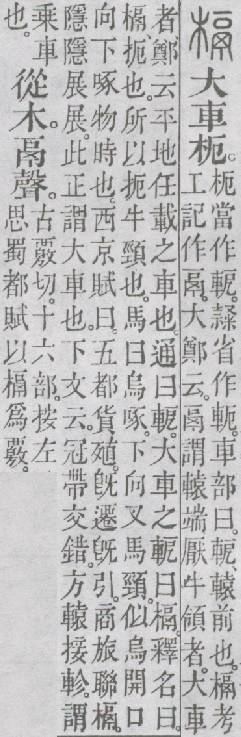 槅大車枙。枙當作軶。隷省作軛。車部曰。軶、轅前也。槅考
工記作鬲。大鄭云。鬲謂轅端厭牛領者。大車
者、鄭云平地任載之車也。通曰軶。大車之軶曰槅。釋名曰。
槅、扼也。所以扼牛頸也。馬曰烏啄。下向又馬頸。似烏開口
向下啄物時也。西京賦曰。五都貨殖。旣遷旣引。商旅聯槅。
隱隱展展。此正謂大車也。下文云。冠帶交錯。方轅接軫。謂
乘車
也。
從木。鬲聲。古覈切。十六部。按左
思蜀都賦以槅爲覈。